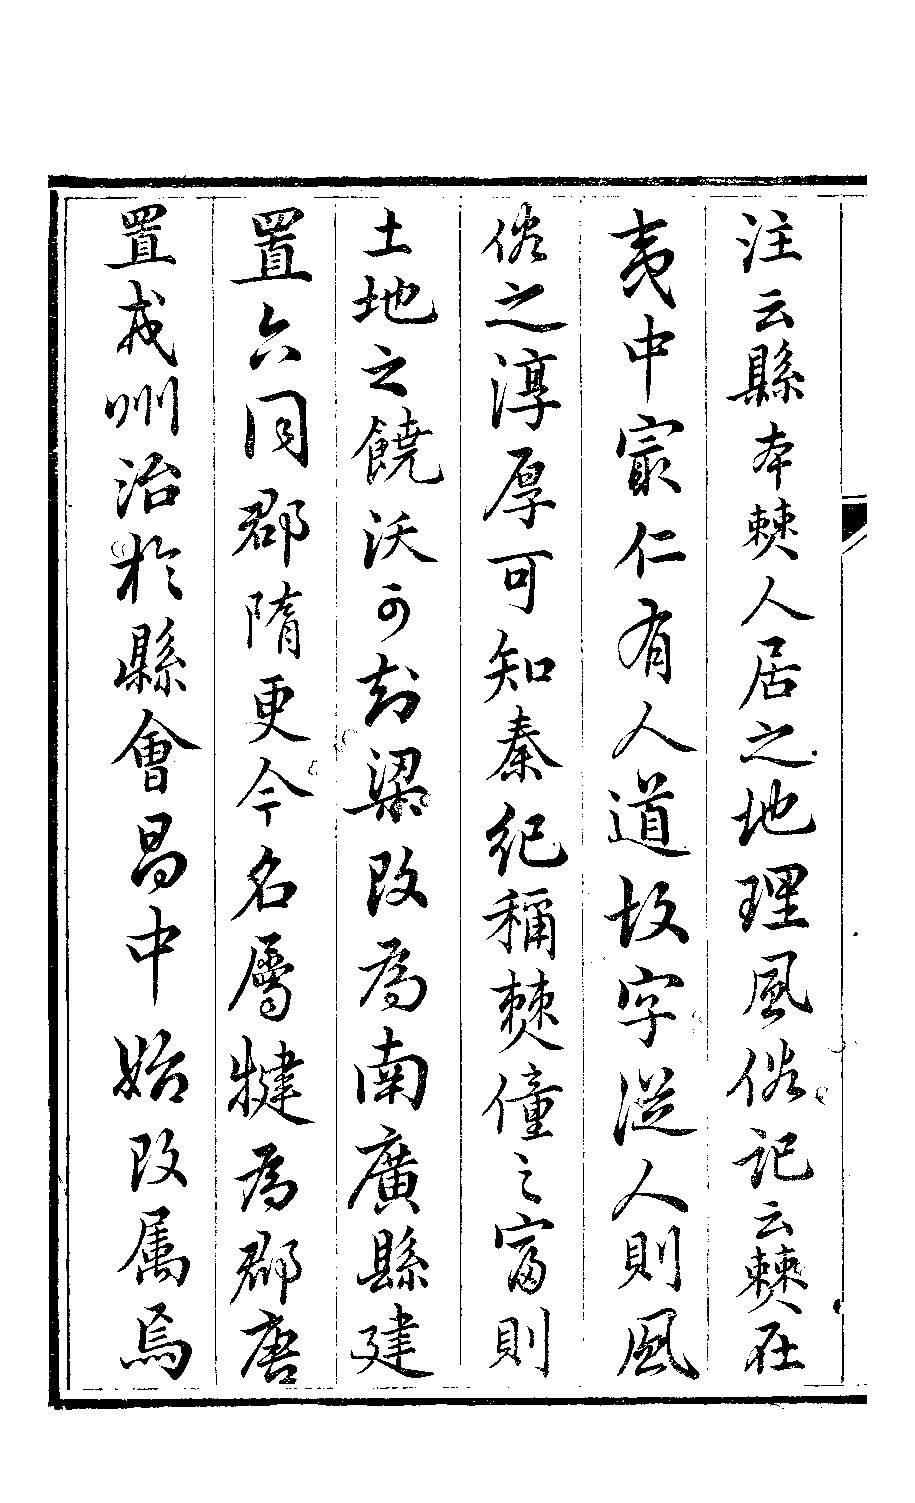 注云縣本僰人居之地理風俗記云僰在
夷中最仁有人道故字從人則風
俗之淳厚可知秦紀稱僰僮之富則
土地之饒沃可知梁改為南廣縣建
置六同郡隋更今名屬犍為郡唐
置戎州治於縣會昌中始改属焉